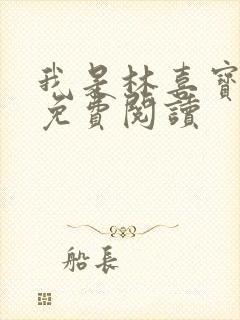 我是林喜寶
免費閱讀
船長